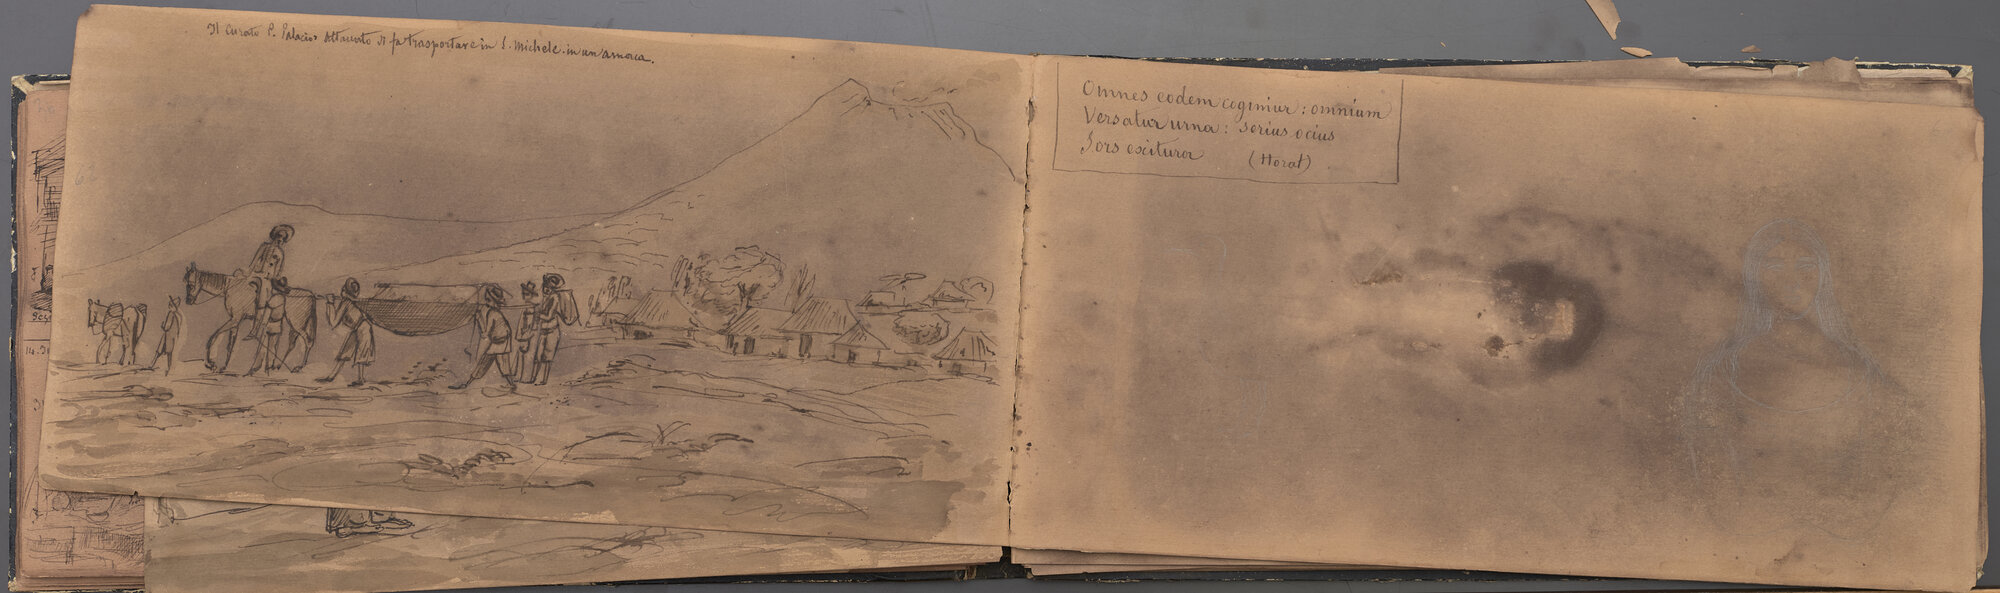 Il Curato P. Palacios attaccato si fa trasportare in S. Michele in un amaca.
Omnes eodem cogimur : omnium
Versatur urna : serius ocius
Sors exitura (Horat)
14.